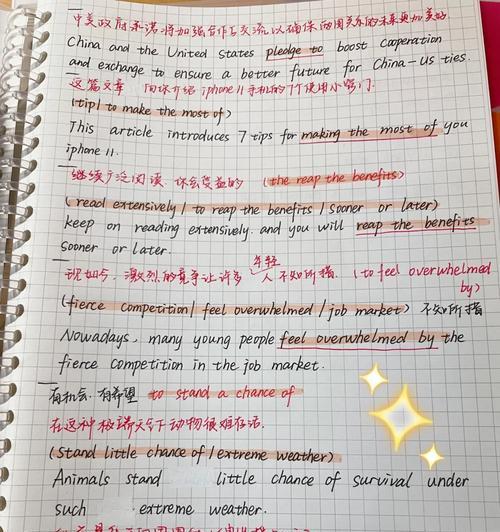 中美政府承诺将加强合作与交流以确保两国关系的未来更加美好.
China and the United States pledge to boost cooperation
and exchange to ensure a better future for China-US ties.
这篇文章 向你介绍 iphone 11 手机的7个使用小窍门.
(tip| to make the most of)
This article introduces 7 tips for making the most of you
iphone 11.
继续广泛阅读. 你会受益的 (the reap the benefits)
(read extensively / to reap the benefits / sooner or later)
keep on reading extensively. and you will reap the benefits
sooner or later.
年轻
现如今, 激烈的竞争让许多人不知所措. (to feel overwhelmed
by)
(fierce competition/ feel overwhelmed / job market) 不知所措
Nowadays, many young people feel overwhelmed by the
fierce competition in the job market.
有机会. 有希望 to stand a chance of
在这种极端天气下动物很难存活.
(Stand little chance of / extreme weather)
Animals stand little chance of survival under
such extreme weather.